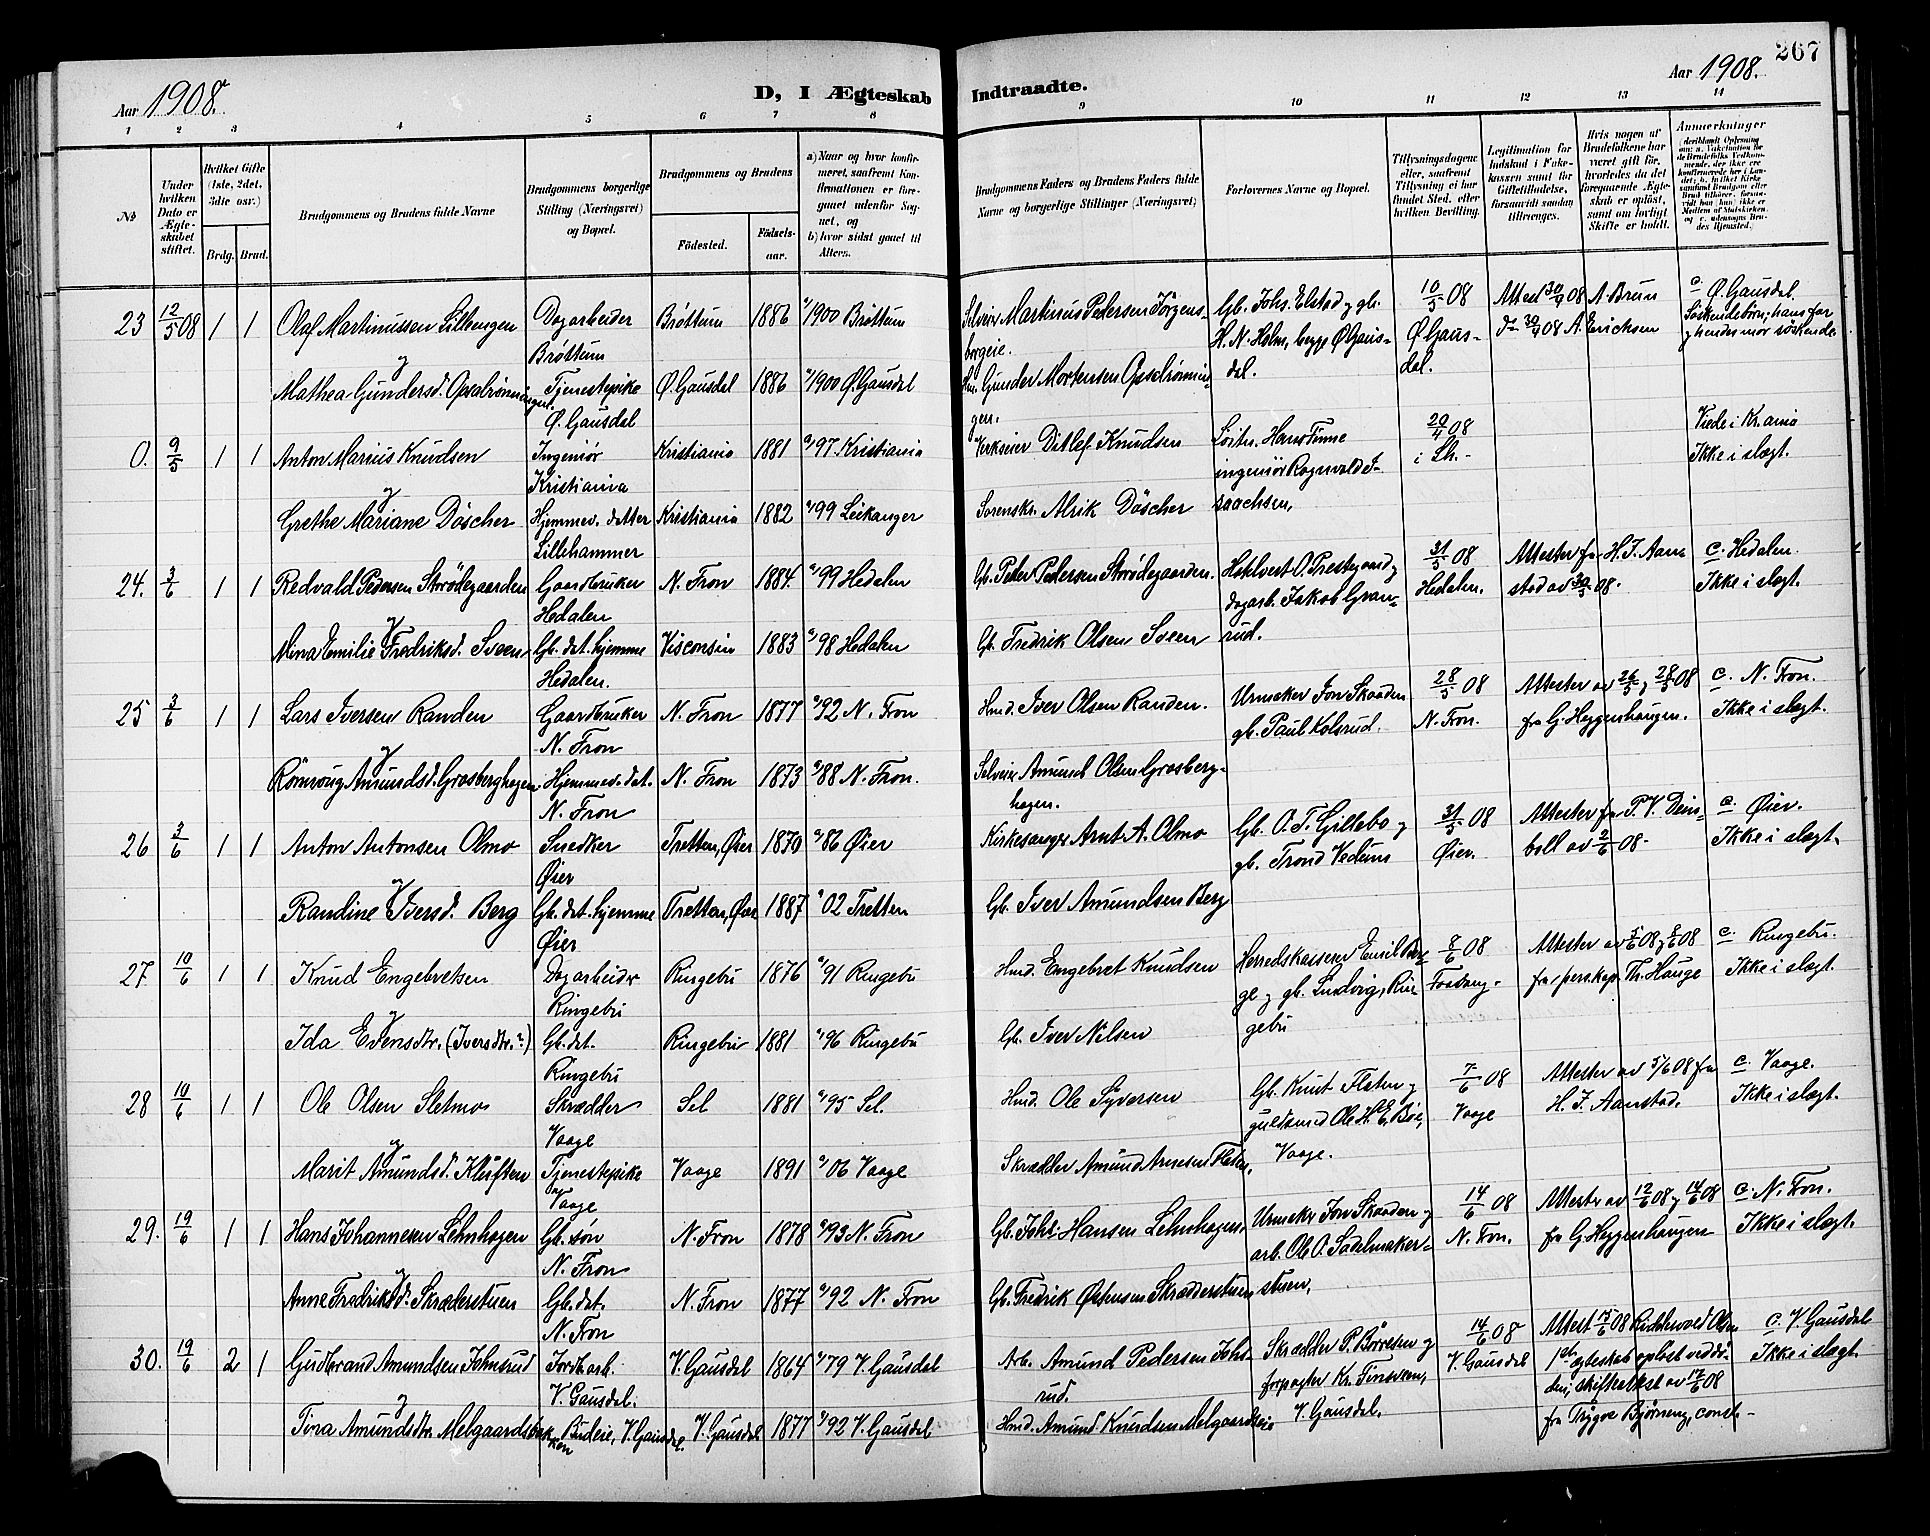 Aar 1908.
D, I Ægteskab Indtraadte.
Aar 1908.
267
1 2 3 4 5 6 7 8 9 10 11 12 13 14
No
Under hvilken Dato er Ægteskabet stiftet.
Hvilket Gifte (1ste, 2det, 3die osv.)
Brdg. Brud.
Brudgommens og Brudens fulde Navne
Brudgommens borgerlige Stilling (Næringsvei) og Bopæl.
Brudgommens og Brudens
Födested. Födselsaar.
a) Naar og hvor konfirmeret, saafremt Konfirmationen er foregaaet udenfor Sognet, og
b) hvor sidst gaaet til Alters.
Brudgommens Faders og Brudens Faders fulde Navne og borgerlige Stillinger (Næringsvei)
Forlovernes Navne og Bopæl.
Tillysningsdagene eller, saafremt Tillysning ei har fundet Sted, efter hvilken Bevilling.
Legitimation for Indskud i Enkekassen samt for Giftetilladelse, forsaavidt saadan tiltrænges.
Hvis nogen af Brudefolkene har været gift før, hvorledes da det foregaaende Ægteskab er opløst, samt om lovligt Skifte er holdt.
Anmerkninger
23 12/5 08 1 1 Olaf Martinussen Lillengen Dagarbeider Brøttum Brøttum 1886 1900 Brøttum Selveier Martinus Pedersen Jörgensborgeie. Gb. Johs. Elstad y gb. H. N. Holm, begge Ø. Gausdal. 10/5 08 Ø Gausdal. Attest 30/4 08 A. Brun Do 30/4 08 A. Erichsen c. Ø. Gausdal. Söskendebörn; hans far y hendes mor söskende
y
Mathea Gundersd. Opsalrönningen. Tjenestepike Ø. Gausdal Ø. Gausdal 1886 1900 Ø. Gausdal Gunder Mortensen Opsalrönningen.
0. 9/5 1 1 Anton Marius Knudsen Ingeniør Kristiania Kristiania 1881 97 Kristiania Verkseier Ditlef Knudsen Löitn. Hans Finne ingeniör Ragnvald Isaachsen, 29/4 08 i Lh. Viede i Kr.ania Ikke i slægt.
y
Grethe Mariane Döscher Hjemmev. datter Lillehammer Kristiania 1882 99 Leikanger Sorenskr. Alrik Döscher
24. 3/6 1 1 Redvald Pedersen Strödegaarden Gaardbruker Hedalen N. Fron 1884 99 Hedalen Gb. Peder Pedersen Strödegaarden. O. Prestegaard y dagarb. Jakob Granrud. 31/5 08 Hedalen. Attester fra H. J. Aanstad av 30/5 08. c. Hedalen. Ikke i slægt.
y
Mina Emilie Fredriksd. Sveen Gb. dat. hjemme Hedalen. Visconsin 1883 98 Hedalen Gb. Fredrik Olsen Sveen
25 3/6 1 1 Lars Iversen Randen Gaardbruker N. Fron N. Fron 1877 92 N. Fron Hmd. Iver Olsen Randen. Urmaker Jon Skaaden gb. Paul Kolsrud. 28/5 08 N. Fron. Attester av 26/5 y 28/5 08 fra G. Heggenhaugen. c. N. Fron. Ikke i slægt.
y
Rönnoug Amundsd. Grosberghagen Hjemmev. dat. N. Fron N. Fron 1873 88 N. Fron. Selveier Amund Olsen Grosberghagen.
26 3/6 1 1 Anton Antonsen Olmo Snedker Øier Tretten, Øier 1870 86 Øier Kirkesanger Arnt A. Olmo Gb. O. T. Gillebo y gb. Trond Vedum 31/5 08 Øier. Attester fra P. V. Deinboll av 2/6 08. c. Øier. Ikke i slægt.
y
Randine Iversd. Berg Gb. dat. hjemme Øier Tretten, Øier 1887 02 Tretten Gb. Iver Amundsen Berg
27 10/6 1 1 Knud Engebretsen Dagarbeider Ringebu Ringebu 1876 91 Ringebu Hmd. Engebret Knudsen Herredskasserer Emil Berge y gb. Ludvig, Ringebu 8/6 08 Faavang. Attester av 5/6 08 y 8/6 08 fra pers.kap. Th. Hauge c. Ringebu. Ikke i slægt.
y
Ida Evensdtr. (Iversdtr.?) Gb. dat. Ringebu Ringebu 1881 96 Ringebu Gb. Iver Nilsen
28 10/6 1 1 Ole Olsen Sletmo Skrædder Vaage Sel 1881 95 Sel. Hmd. Ole Syversen Gb. Knut Flaten y guldsmed Ole H. E. Böe, Vaage. 7/6 08 Vaage Attester av 5/6 08 fra H. J. Aanstad. c. Vaage. Ikke i slægt.
y
Marit Amundsd. Kluften Tjenestepike Vaage Vaage 1891 06 Vaage Skrædder Amund Arnesen Flaten,
29. 19/6 1 1 Hans Johannesen Lehnhagen Gb. søn N. Fron N. Fron 1878 93 N. Fron Gb. Johs. Hansen Lehnhagen Urmaker Jon Skaaden y arb. Ole O. Sadelmakerstuen, 14/6 08 N. Fron. Attester av 12/6 08 y 14/6 08 fra G. Heggenhaugen c. N. Fron. Ikke i slægt.
y
Anne Fredriksd. Skræderstuen Gb. dat. N. Fron N. Fron 1877 92 N. Fron Gb. Fredrik Østensen Skrædderstuen
30. 19/6 2 1 Gudbrand Amundsen Johnsrud Jordbarb. V. Gausdal. V. Gausdal 1864 79 V. Gausdal Arb. Amund Pedersen Johnsrud. Skrædder P. Börresen y forpagter Kr. V. Gausdal. 14/6 08 V. Gausdal Attest 17/6 08 Riddervold Olsen 1ste egteskab oplöst ved döden; skifteattest av 17/6 08 fra Trygve Björneng, const. c. V. Gausdal Ikke i slægt.
y
Tina Amundsdtr. Melgaardsbakken Budeie, V. Gausdal. V. Gausdal 1877 92 V. Gausdal Hmd. Amund Knudsen Melgaardseie